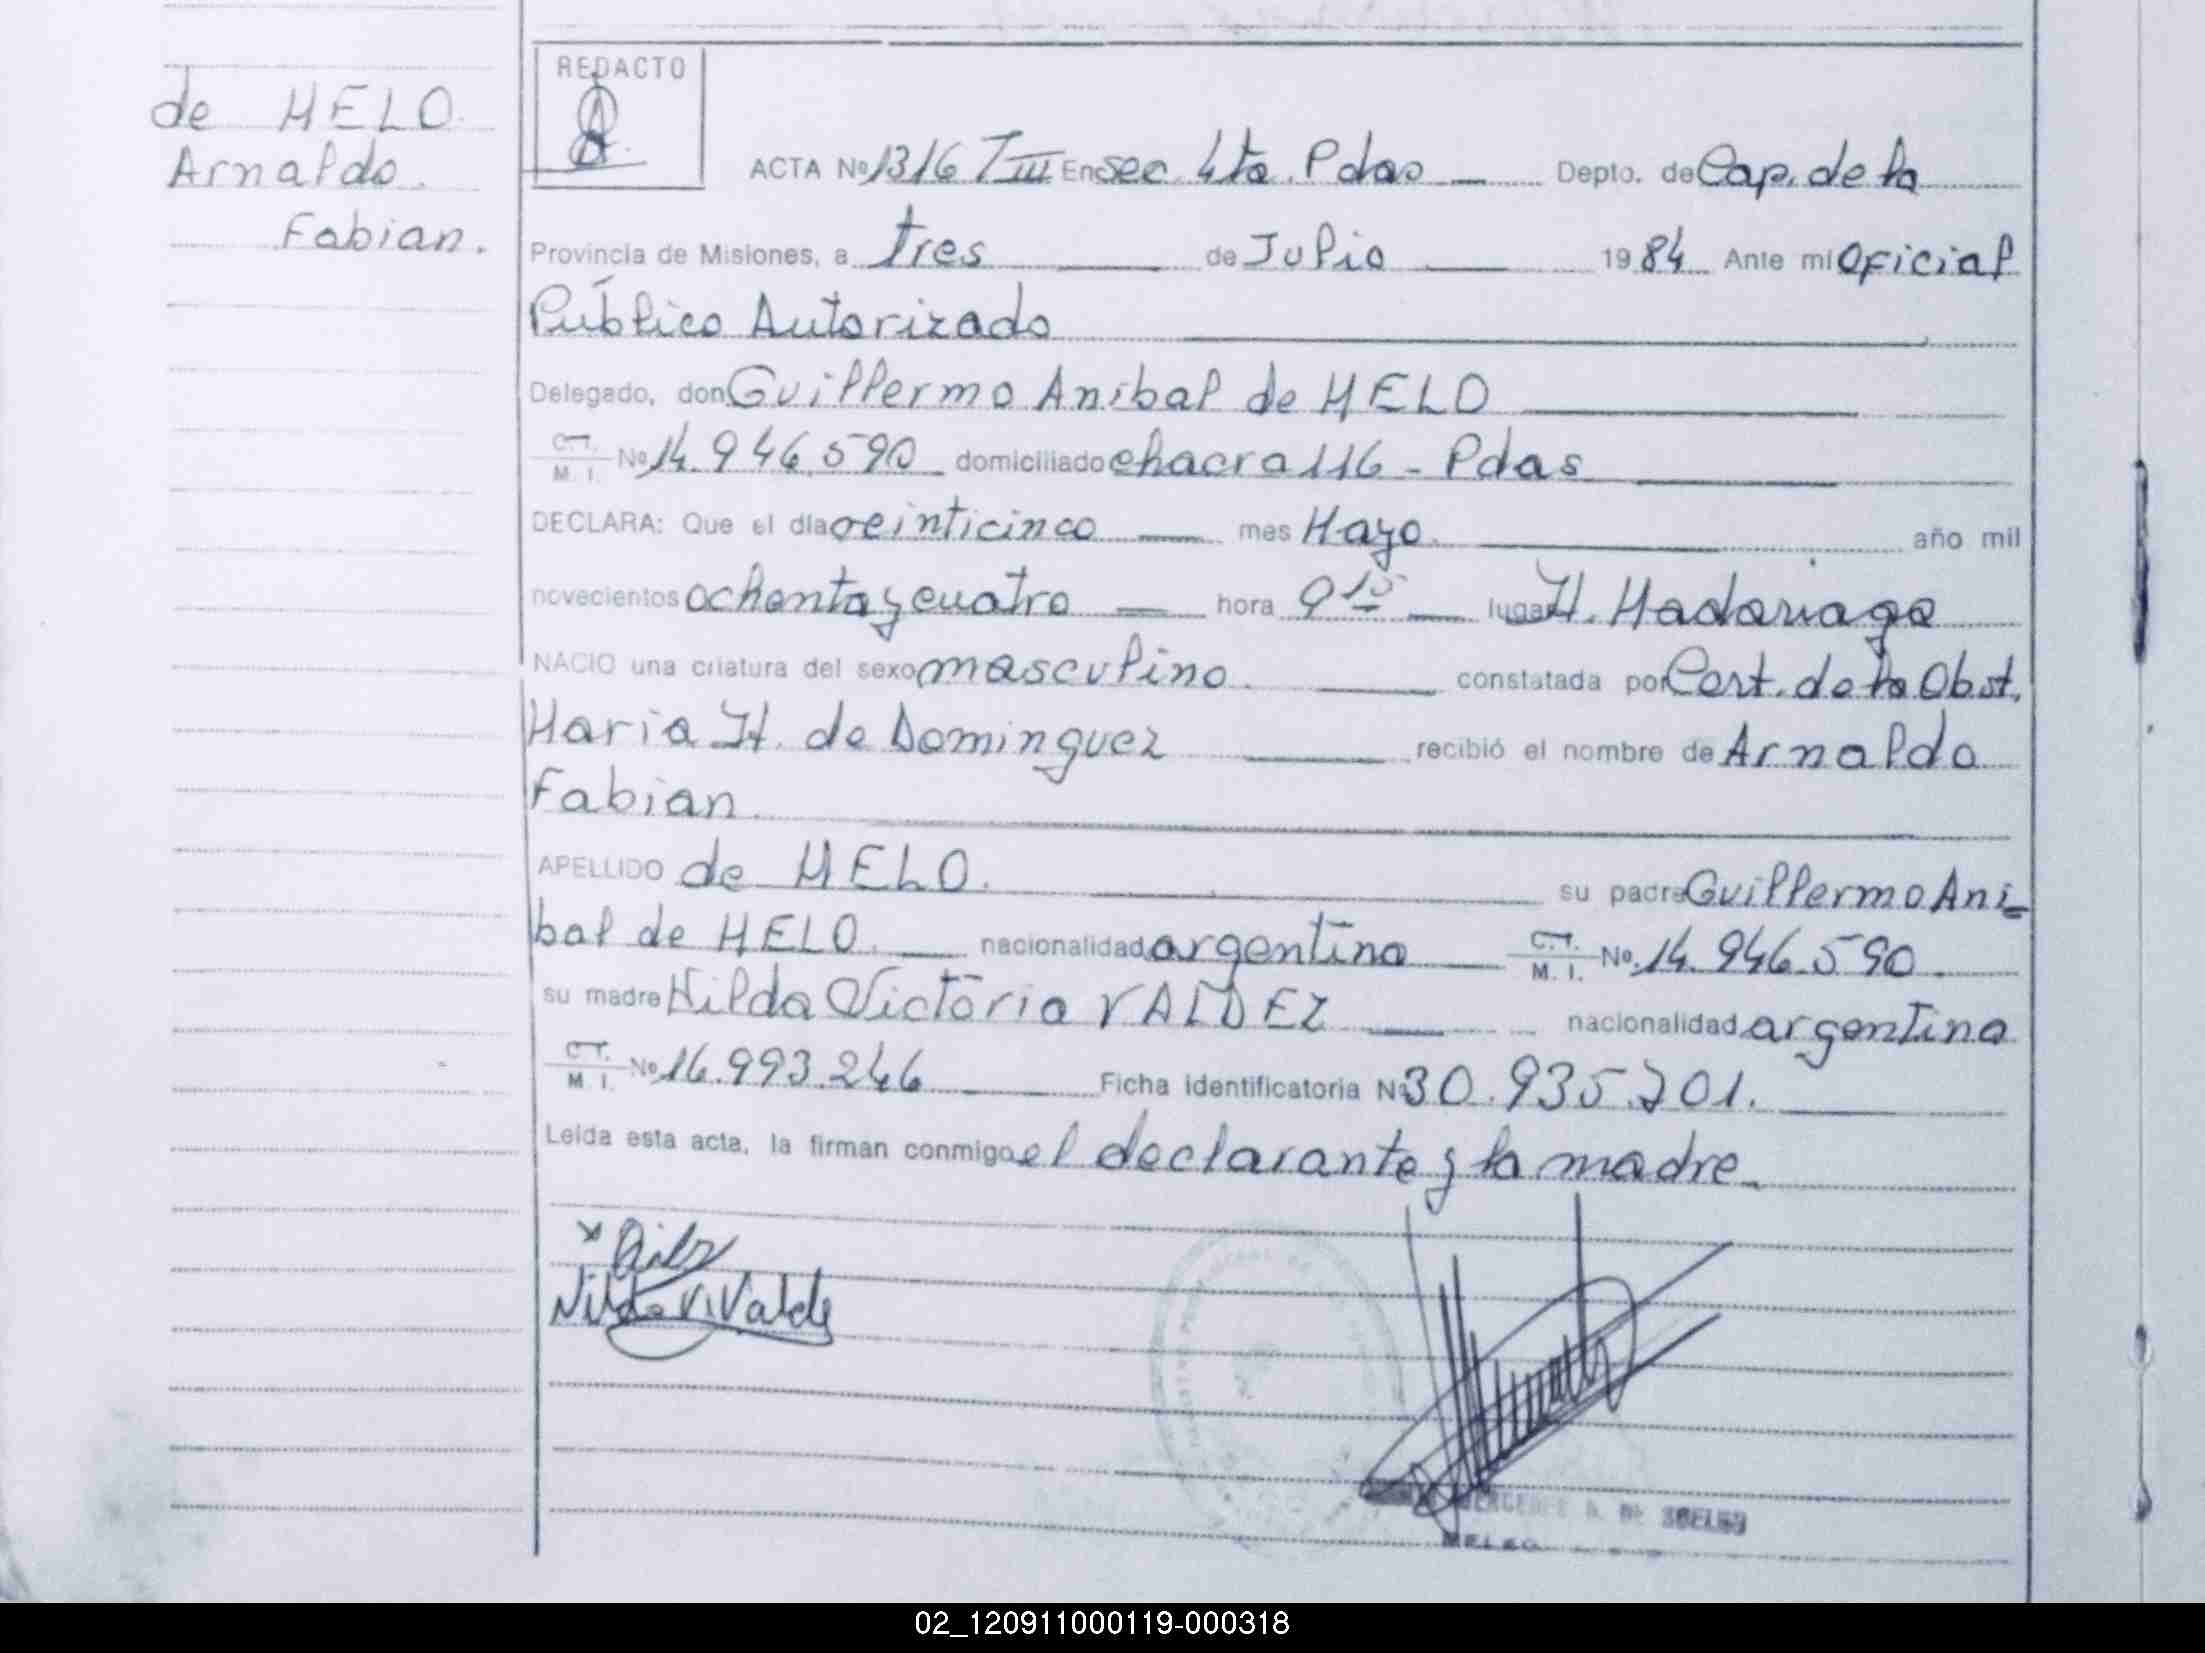 REDACTO
de MELO.
Arnaldo.
Fabian.
ACTA Nº 1316 T III En sec. 4ta. Pdas Depto. de Cap. de la
Provincia de Misiones, a tres de Julio 1984 Ante mi Oficial
Público Autorizado
Delegado, don Guillermo Anibal de MELO
C.I. M. I. Nº 14.946.590 domiciliado chacra 116 - Pdas
DECLARA: Que el día veinticinco mes Mayo. año mil
novecientos ochenta y cuatro hora 9 15 lugar H. Madariaga
NACIO una criatura del sexo masculino. constatada por Cert. de la Obst.
Maria H. de Dominguez recibió el nombre de Arnaldo
Fabian.
APELLIDO de MELO. su padre Guillermo Ani-
bal de MELO. nacionalidad argentina C.I. M. I. Nº 14.946.590
su madre Nilda Victoria VALDEZ nacionalidad argentina
C.I. M. I. Nº 16.993.246 Ficha identificatoria Nº 30.935.201.
Leída esta acta, la firman conmigo el declarante y la madre
Nilda V. Valde
02_120911000119-000318